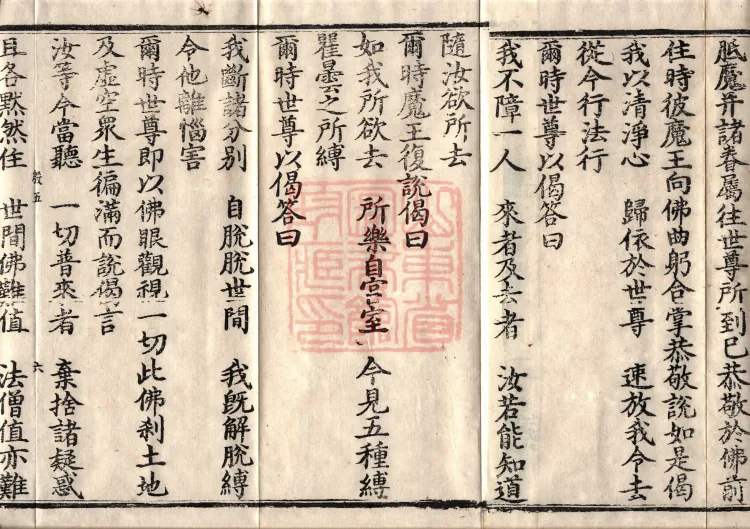 眡魔幷諸眷屬往世尊所到已恭敬於佛前
住時彼魔王向佛曲躬合掌恭敬說如是偈
我以清淨心　歸依於世尊　速放我令去
從今行法行
爾時世尊以偈答曰
我不障一人　來者及去者　汝若能知道
隨汝欲所去
爾時魔王復說偈曰
如我所欲去　所樂自宮室　今見五種縛
瞿曇之所縛
爾時世尊以偈答曰
我斷諸分別　自脫脫世間　我旣解脫縛
令他離惱害
爾時世尊即以佛眼觀視一切此佛刹土地
及虛空衆生徧滿而說偈言
汝等今當聽　一切普來者　棄捨諸疑惑
且各默然住　世間佛難值　法僧值亦難
殷五　六